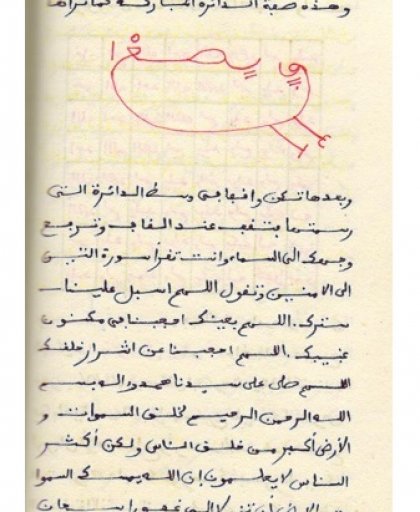 وهذه صفة الدائرة المباركة كما تراها
وبعدها تكن واقفا في وسط الدائرة التي
رسمتها عند وترجع
وجهك الى السماء وانت تقرأ سورة التين
الى الامنين وتقول اللهم اسبل علينا
سترك. اللهم بعينك احجبنا في مكنون
غيبك. اللهم احجبنا عن اشرار خلقك
اللهم صلى على سيدنا محمد واله بسم
الله الرحمن الرحيم لخلق السموات و
الأرض أكبر من خلق الناس ولكن أكثر
الناس لا يعلمون إن الله يمسك السموا